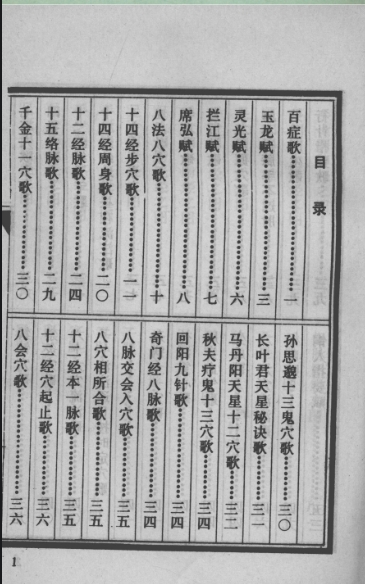 目录
百症歌 一
玉龙赋 三
灵光赋 六
拦江赋 七
席弘赋 八
八法八穴歌 十
十四经步穴歌 一一
十四经周身歌 二〇
十二经脉歌 二四
十五络脉歌 二九
千金十一穴歌 三〇
孙思邈十三鬼穴歌 三〇
长叶君天星秘诀歌 三一
马丹阳天星十二穴歌 三二
秋夫疗鬼十三穴歌 三四
回阳九针歌 三四
奇门经八脉歌 三四
八脉交会入穴歌 三五
八穴相所合歌 三五
十二经本一脉歌 三五
十二经穴起止歌 三六
八会穴歌 三六
1